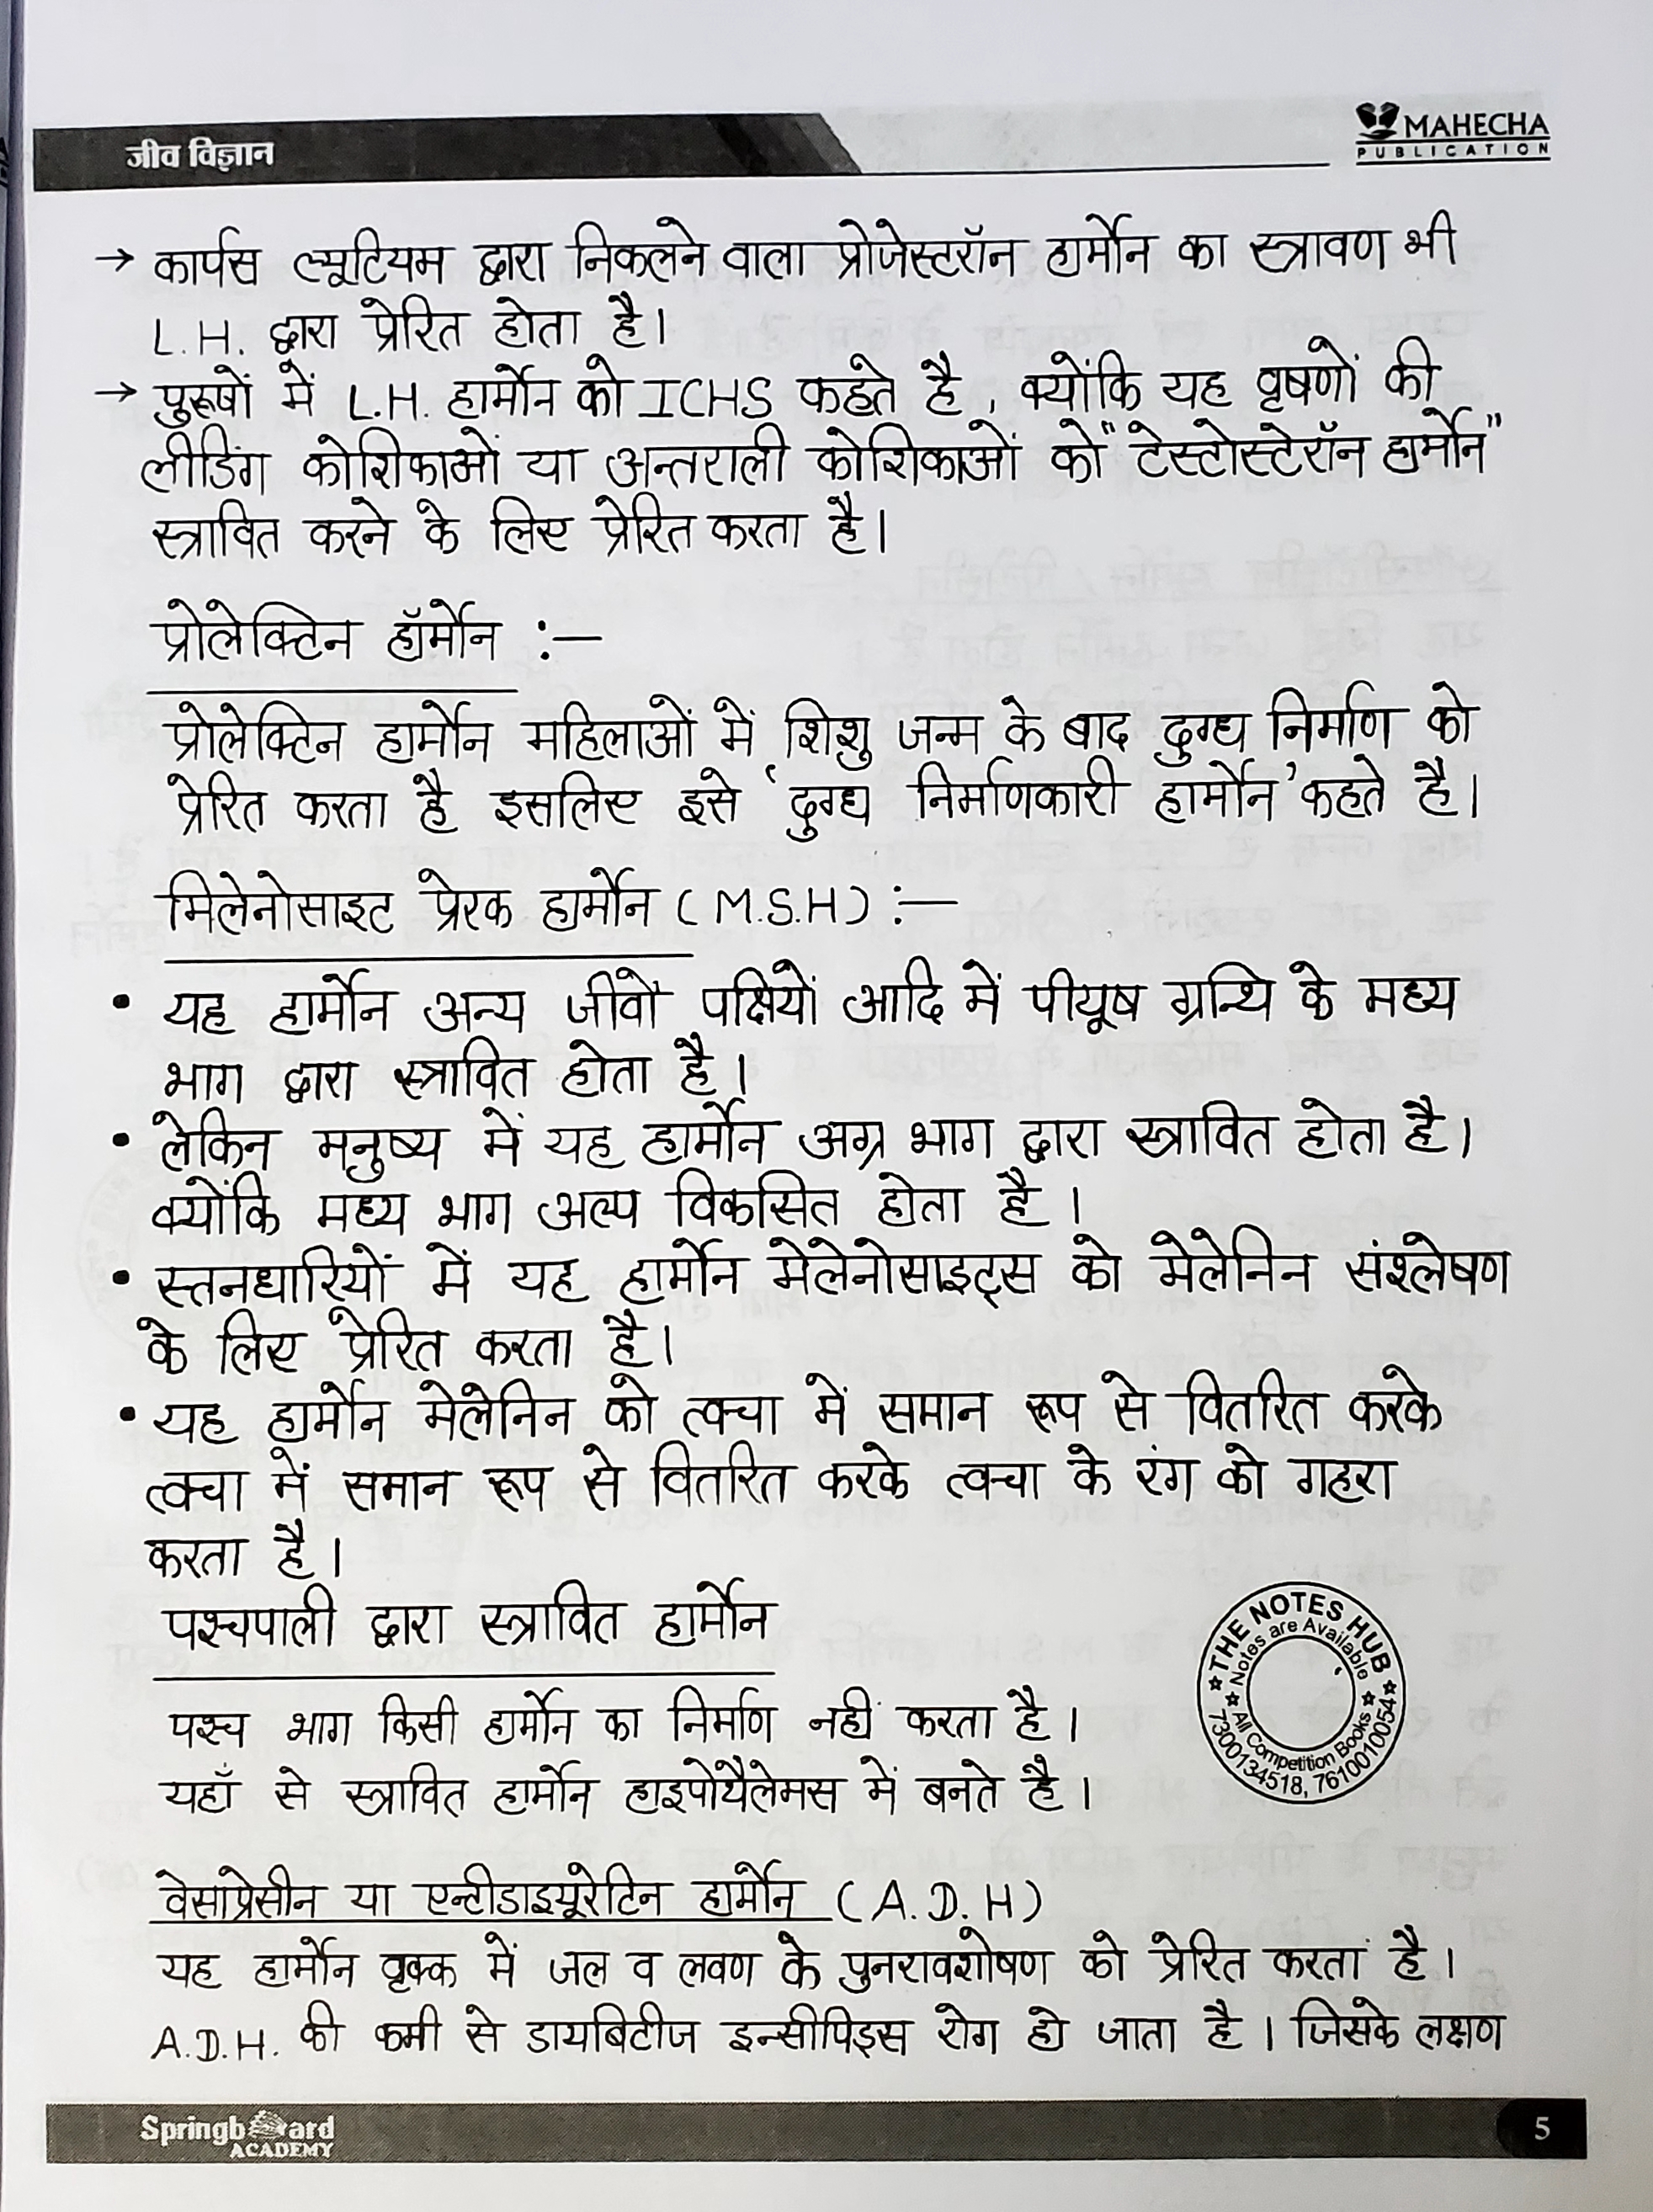 जीव विज्ञान
MAHECHA
PUBLICATION
→ कार्पस ल्यूटियम द्वारा निकलने वाला प्रोजेस्टरॉन हार्मोन का स्त्रावण भी
L.H. द्वारा प्रेरित होता है।
→ पुरूषों में L.H. हार्मोन को ICHS कहते है, क्योंकि यह वृषणों की
लीडिंग कोशिकाओं या अन्तराली कोशिकाओं को "टेस्टोस्टेरॉन हार्मोन"
स्त्रावित करने के लिए प्रेरित करता है।
प्रोलेक्टिन हॉर्मोन :—
प्रोलेक्टिन हार्मोन महिलाओं में शिशु जन्म के बाद दुग्ध निर्माण को
प्रेरित करता है इसलिए इसे 'दुग्ध निर्माणकारी हार्मोन' कहते है।
मिलेनोसाइट प्रेरक हार्मोन (M.S.H) :—
• यह हार्मोन अन्य जीवों पक्षियों आदि में पीयूष ग्रन्थि के मध्य
भाग द्वारा स्त्रावित होता है।
• लेकिन मनुष्य में यह हार्मोन अग्र भाग द्वारा स्त्रावित होता है।
क्योंकि मध्य भाग अल्प विकसित होता है।
• स्तनधारियों में यह हार्मोन मेलेनोसाइट्स को मेलेनिन संश्लेषण
के लिए प्रेरित करता है।
• यह हार्मोन मेलेनिन को त्वचा में समान रूप से वितरित करके
त्वचा में समान रूप से वितरित करके त्वचा के रंग को गहरा
करता है।
पश्चपाली द्वारा स्त्रावित हार्मोन
पश्च भाग किसी हार्मोन का निर्माण नहीं करता है।
यहाँ से स्त्रावित हार्मोन हाइपोथैलेमस में बनते है।
THE NOTES HUB
Notes are Available
All Competition Books
7300134518, 7610010054
वेसोप्रेसीन या एन्टीडाइयूरेटिन हार्मोन (A.D.H)
यह हार्मोन वृक्क में जल व लवण के पुनरावशोषण को प्रेरित करता है।
A.D.H. की कमी से डायबिटीज इन्सीपिड्स रोग हो जाता है। जिसके लक्षण
Springboard
ACADEMY
5